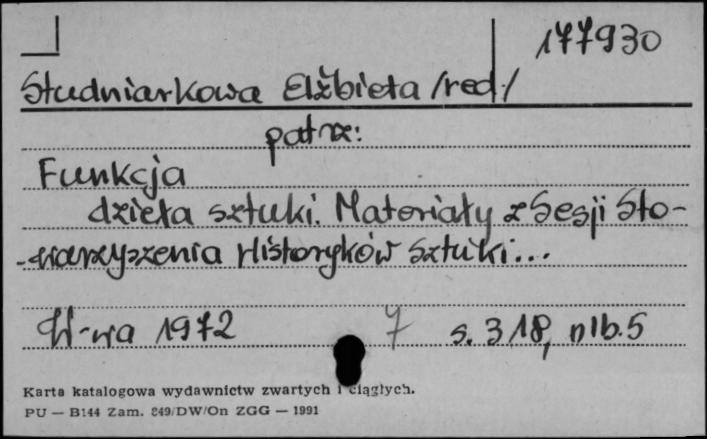 177930
Studniarkowa Elżbieta /red/
patrz:
Funkcja
dzieła sztuki. Materiały z Sesji Sto-
-warzyszenia Historyków Sztuki...
W-wa 1972 7 s. 318, nlb. 5
Karta katalogowa wydawnictw zwartych i ciągłych.
PU — B144 Zam. 849/DW/On ZGG — 1991